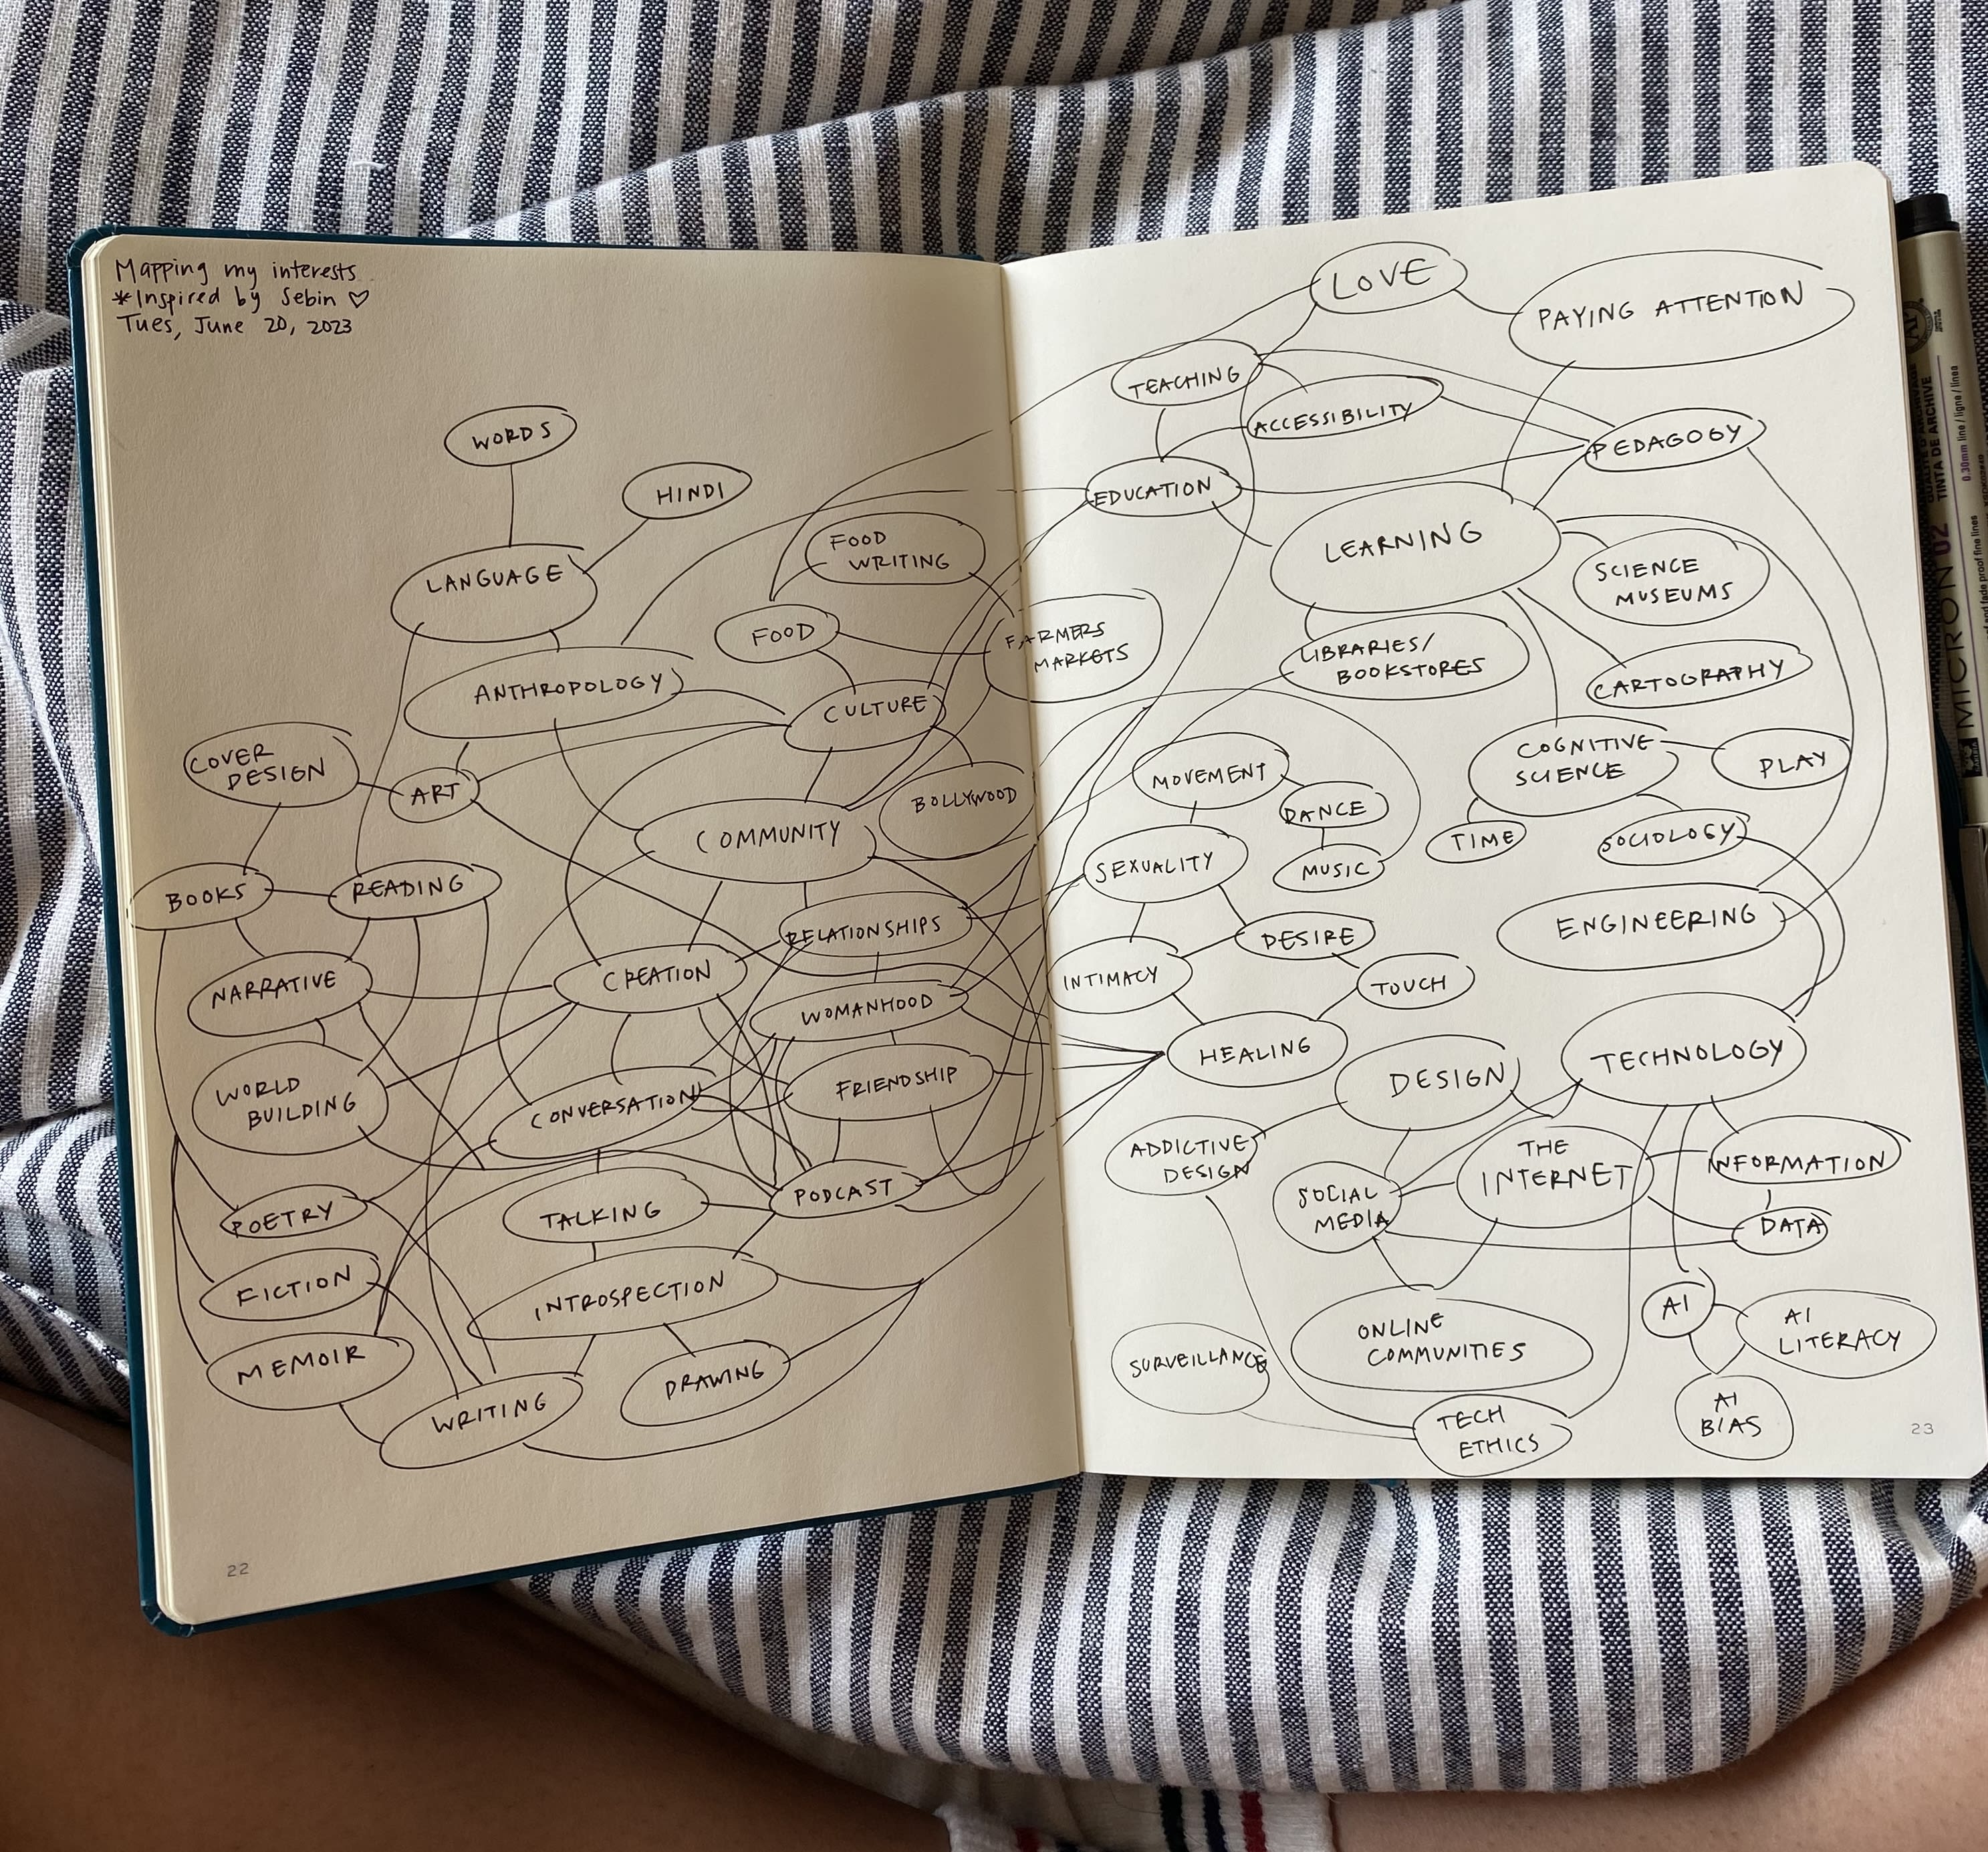 Mapping my interests
*Inspired by Sebin ♡
Tues, June 20, 2023
WORDS
HINDI
LANGUAGE
FOOD
WRITING
FOOD
ANTHROPOLOGY
CULTURE
COVER
DESIGN
ART
BOLLYWOOD
COMMUNITY
BOOKS
READING
RELATIONSHIPS
NARRATIVE
CREATION
WOMANHOOD
WORLD
BUILDING
CONVERSATION
FRIENDSHIP
POETRY
TALKING
PODCAST
FICTION
INTROSPECTION
MEMOIR
DRAWING
WRITING
22
LOVE
PAYING ATTENTION
TEACHING
ACCESSIBILITY
PEDAGOGY
EDUCATION
LEARNING
SCIENCE
MUSEUMS
FARMERS
MARKETS
LIBRARIES/
BOOKSTORES
CARTOGRAPHY
MOVEMENT
COGNITIVE
SCIENCE
PLAY
DANCE
TIME
SOCIOLOGY
SEXUALITY
MUSIC
DESIRE
ENGINEERING
INTIMACY
TOUCH
HEALING
DESIGN
TECHNOLOGY
ADDICTIVE
DESIGN
THE
INTERNET
INFORMATION
SOCIAL
MEDIA
DATA
AI
AI
LITERACY
SURVEILLANCE
ONLINE
COMMUNITIES
AI
BIAS
TECH
ETHICS
23
MICRON 02
TINTA DE ARCHIVE
0.30mm line/ligne/línea